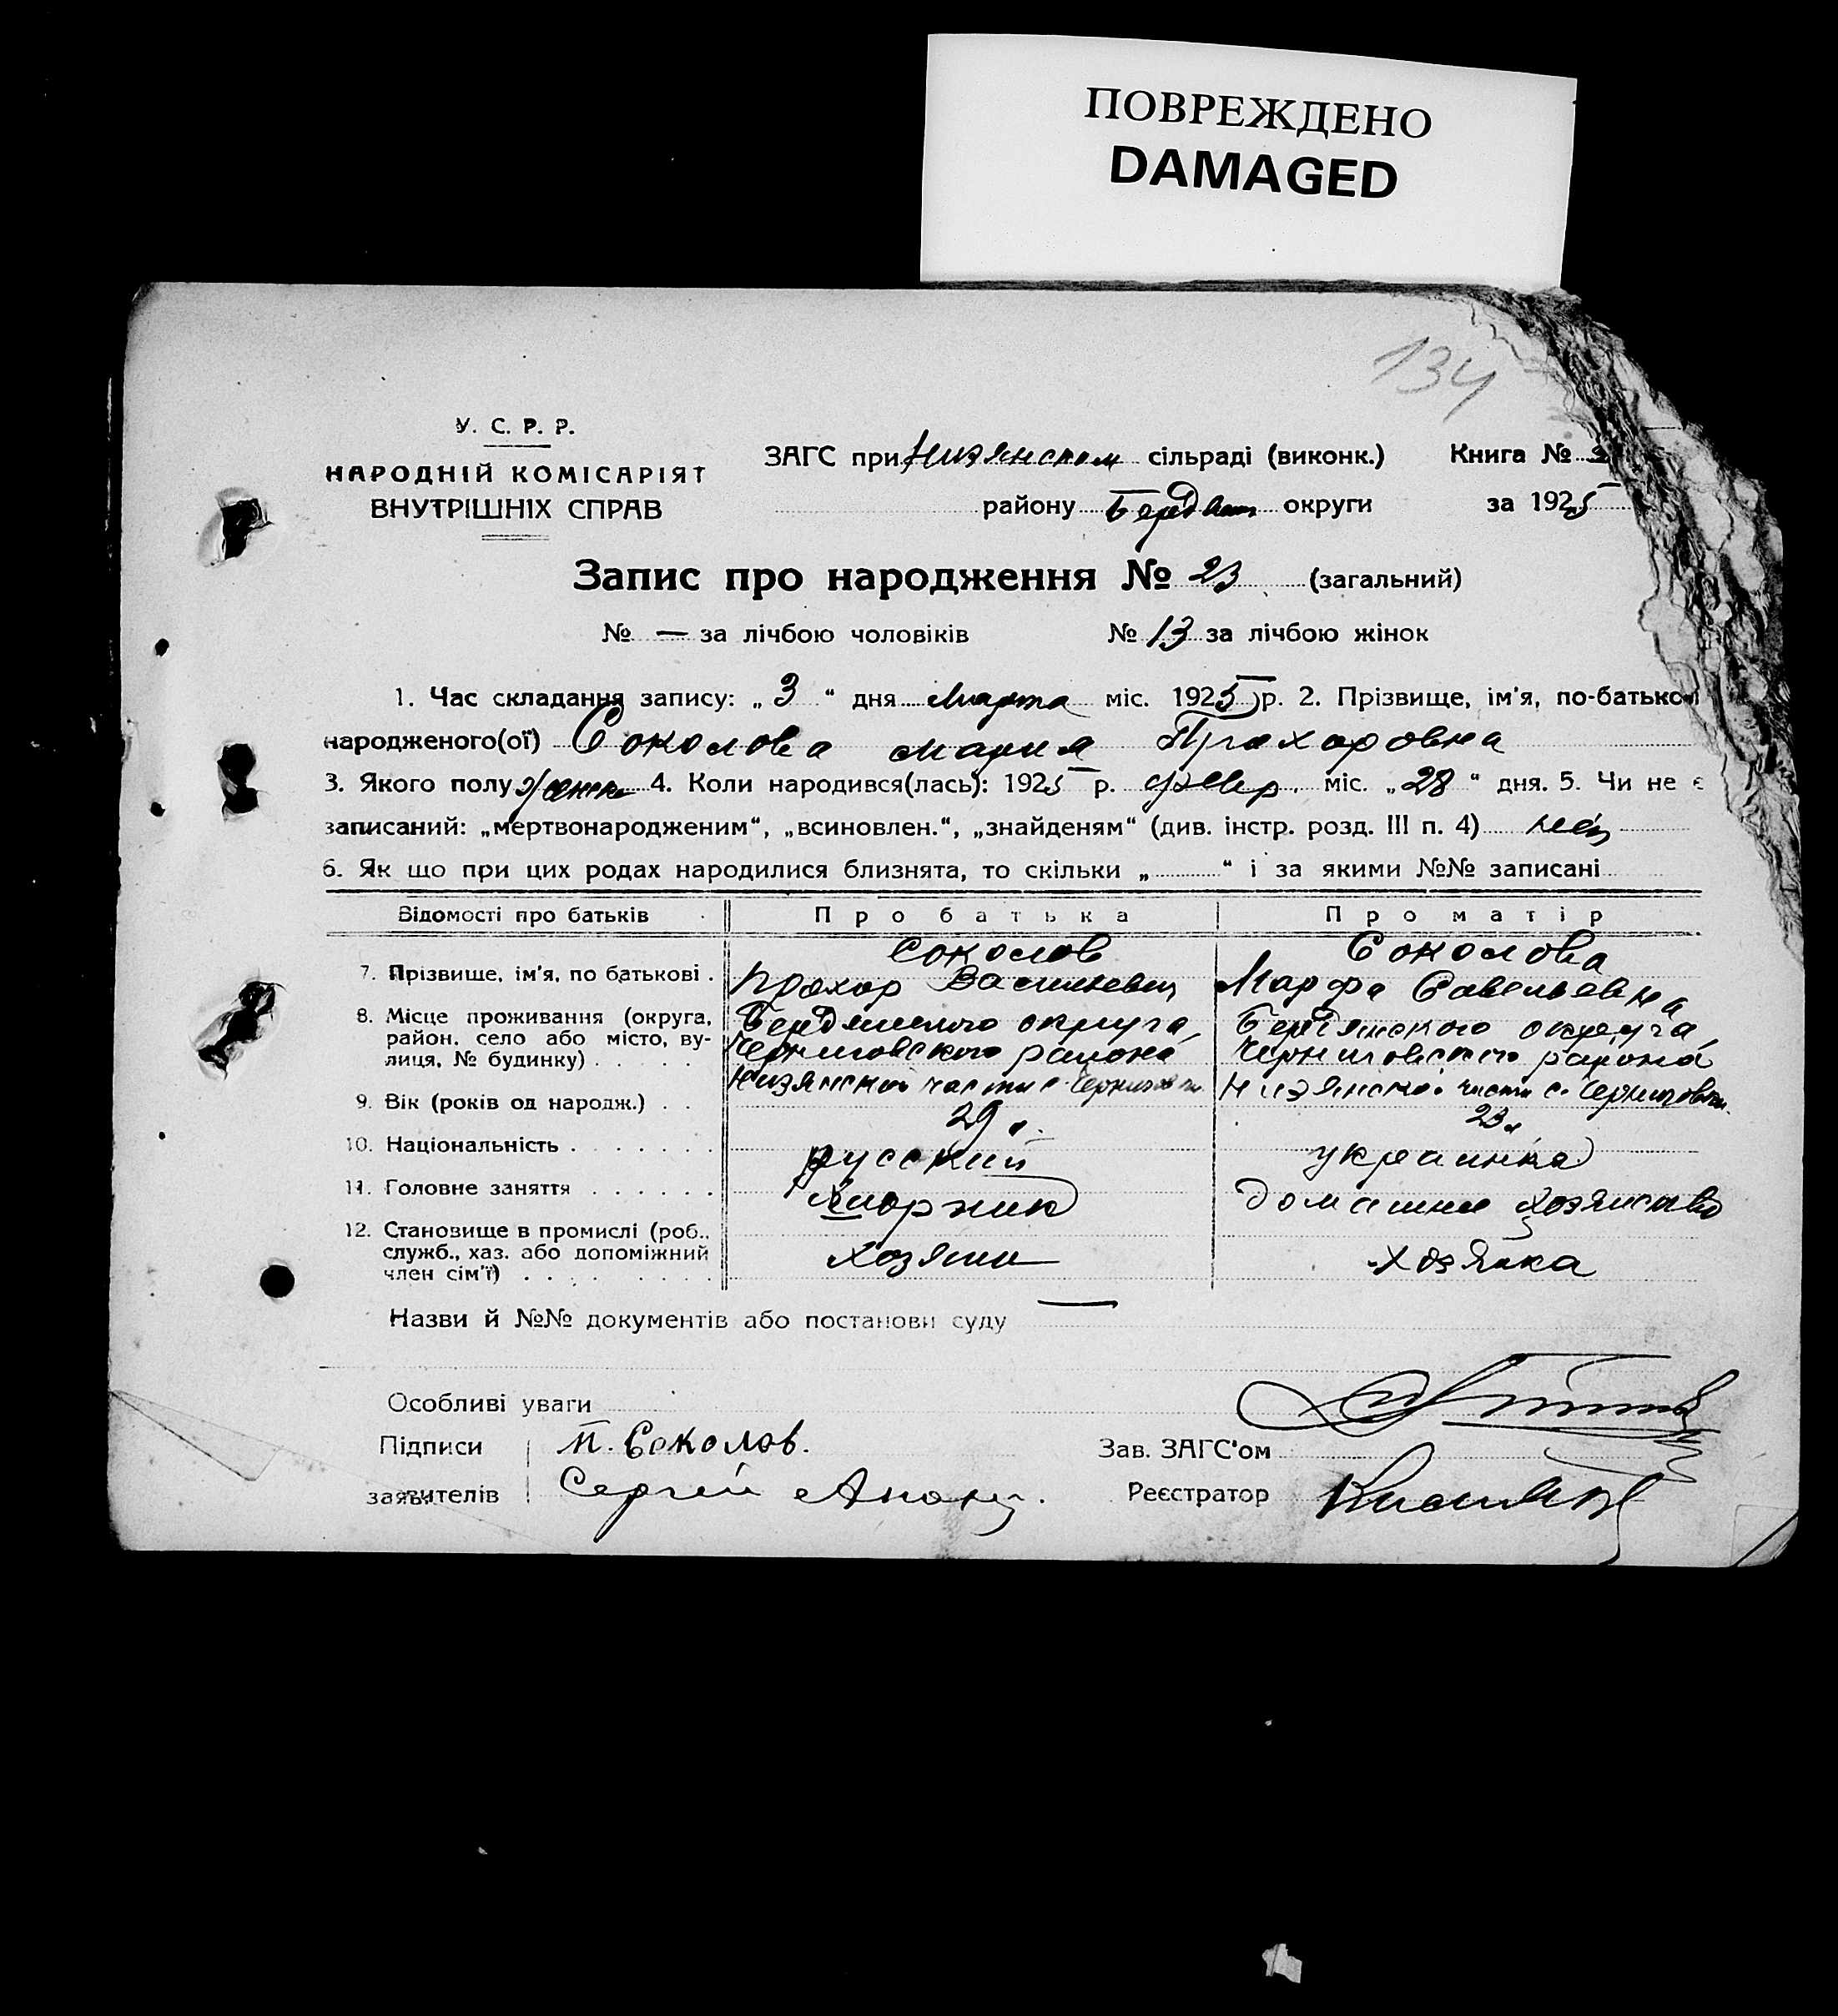 ПОВРЕЖДЕНО
DAMAGED
134
У. С. Р. Р.
НАРОДНІЙ КОМІСАРІЯТ
ВНУТРІШНІХ СПРАВ
ЗАГС при Низянском сільраді (виконк.) Книга №
району Бердян округи за 1925
Запис про народження № 23 (загальний)
№ — за лічбою чоловіків № 13 за лічбою жінок
1. Час складання запису: „ 3 “ дня Марта міс. 1925 р. 2. Прізвище, ім'я, по-батькові
народженого(ої) Соколова Мария Прохоровна
3. Якого полу женск 4. Коли народився(лась): 1925 р. февр. міс. „28“ дня. 5. Чи не є
записаний: „мертвонародженим“, „всиновлен.“, „знайденям“ (див. інстр. розд. III п. 4) нет
6. Як що при цих родах народилися близнята, то скільки „ “ і за якими №№ записані
Відомості про батьків Про батька Про матір
Соколов Соколова
7. Прізвище, ім'я, по батькові . Прохор Васильевич Марфа Савельевна
8. Місце проживання (округа, Бердянского округа, Бердянского округа,
район, село або місто, ву- Черниговского района Черниговского района
лиця, № будинку) . . . . Низянской части с. Черниговки Низянской части с. Черниговки
9. Вік (років од народж.) . . 29 л. 23 л
10. Національність . . . . . . . русский украинка
11. Головне заняття . . . . . . домашнее хозяйство
12. Становище в промислі (роб.,
служб., хаз. або допоміжний хозяин хозяйка
член сім'ї) . . . . . . . .
Назви й №№ документів або постанови суду —
Особливі уваги
Підписи П. Соколов. Зав. ЗАГС'ом
заявителів Сергей Реєстратор